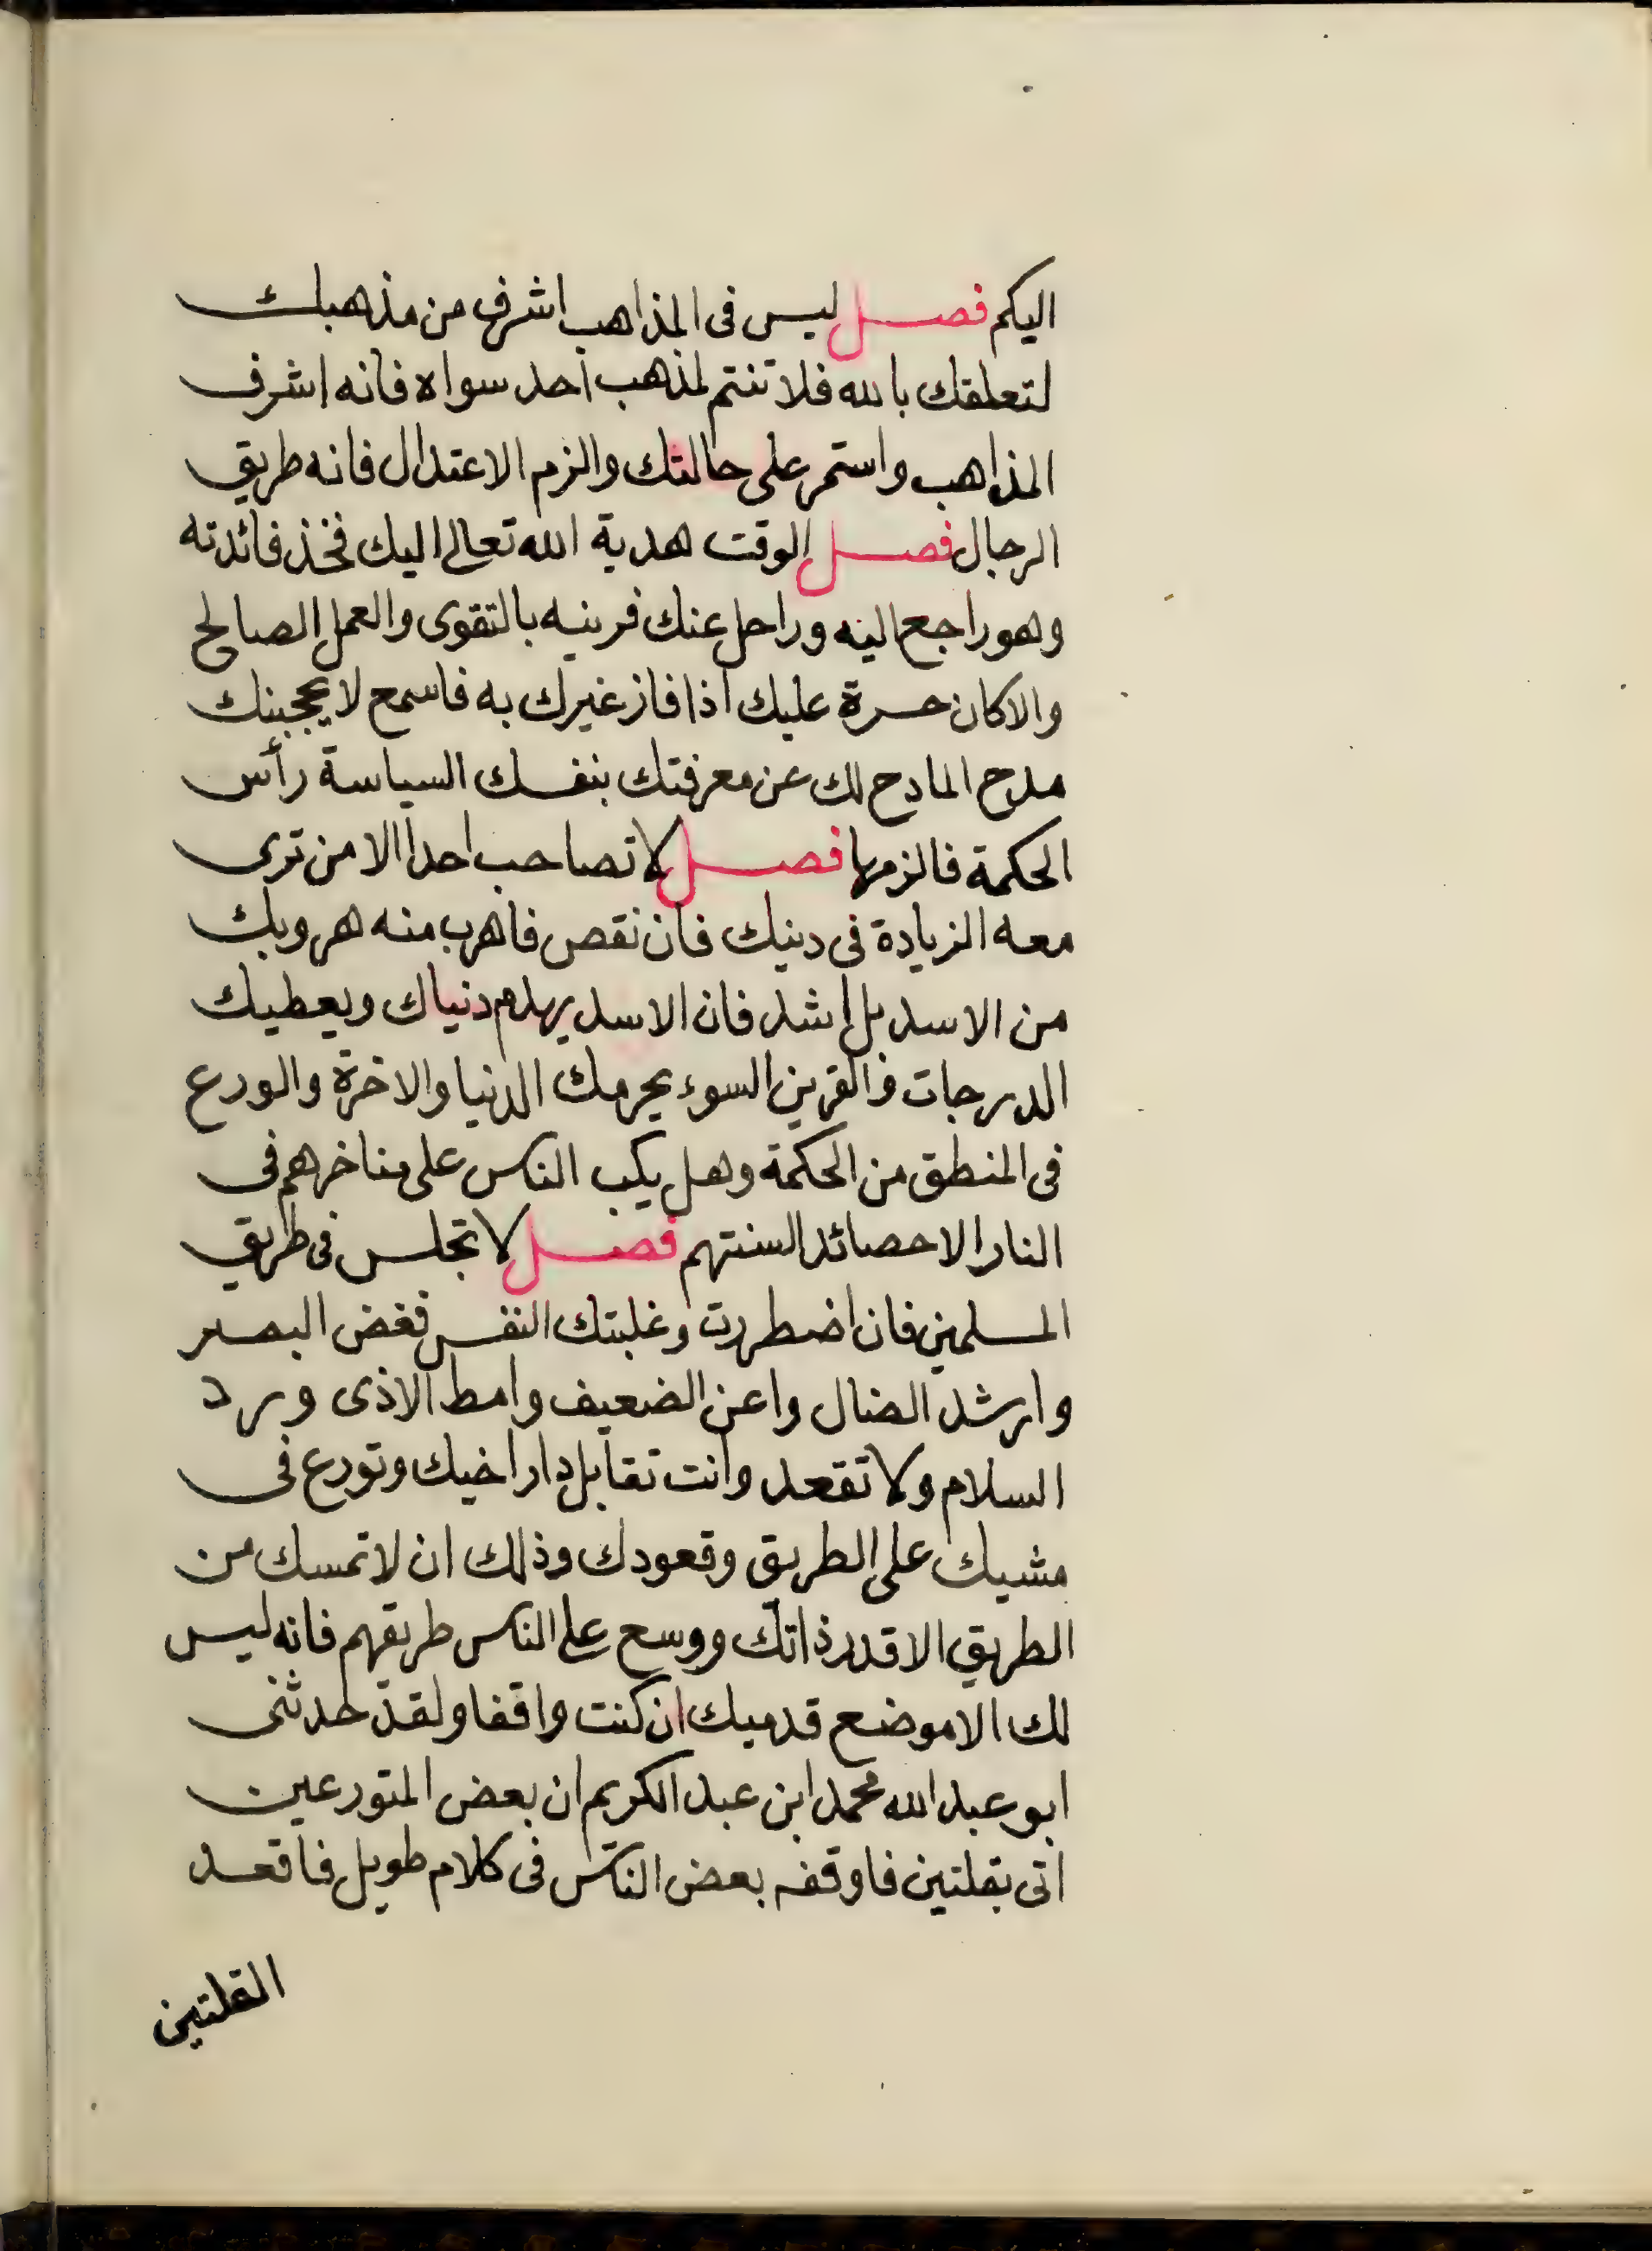 اليكم فصل ليس فى المذاهب اشرف من مذهبك
لتعلقك بالله فلا تنتم لمذهب احد سواه فانه اشرف
المذاهب واستمر على حالتك والزم الاعتدال فانه طريق
الرجال فصل الوقت هدية الله تعالى اليك فخذ فائدته
وهو راجع اليه وراحل عنك فزينه بالتقوى والعمل الصالح
والا كان حسرة عليك اذا فاز غيرك به فاسمع لا يحجبنك
مدح المادح لك عن معرفتك بنفسك السياسة رأس
الحكمة فالزمها فصل لا تصاحب احدا الا من ترى
معه الزيادة فى دينك فان نقص فاهرب منه هروبك
من الاسد بل اشد فان الاسد يهدم دنياك ويعطيك
الدرجات والقرين السوء يحرمك الدنيا والاخرة والورع
فى المنطق من الحكمة وهل يكب الناس على مناخرهم فى
النار الا حصائد السنتهم فصل لا تجلس فى طريق
المسلمين فان اضطررت وغلبتك النفس فغض البصر
وارشد الضال واعن الضعيف وامط الاذى ورد
السلام ولا تقعد وانت تقابل دار اخيك وتورع فى
مشيك على الطريق وقعودك وذلك ان لا تمسك من
الطريق الا قدر ذاتك ووسع على الناس طريقهم فانه ليس
لك الا موضع قدميك ان كنت واقفا ولقد حدثنى
ابو عبد الله محمد ابن عبد الكريم ان بعض المتورعين
اتى بقلتين فاوقفه بعض الناس فى كلام طويل فاقعد
القلتين